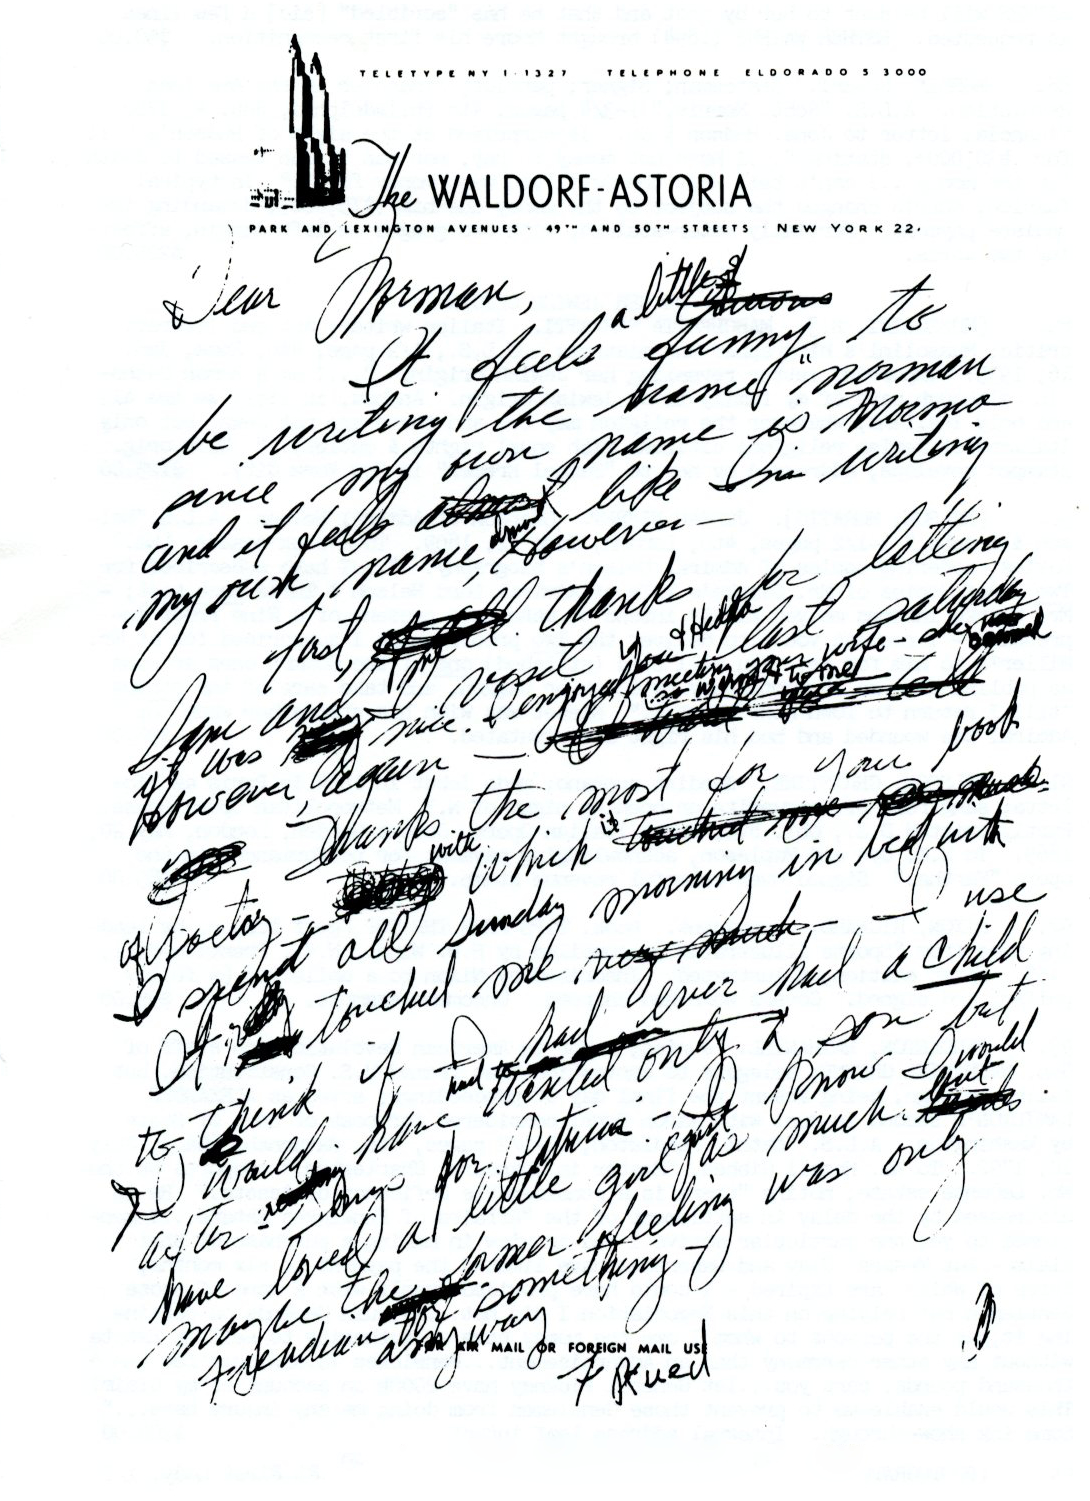 TELETYPE NY 1-1327 TELEPHONE ELDORADO 5 3000
The WALDORF-ASTORIA
PARK AND LEXINGTON AVENUES · 49TH AND 50TH STREETS · NEW YORK 22.
Dear Norman,
It feels a little funny to
be writing the name "norman
since my own name is Norma
and it feels like I'm writing
my own name almost, However—
First, thanks for letting
Sam and I visit you & Hedda last saturday.
It was nice - I enjoyed meeting your wife - she seemed
so warm to me
However, again —
Thanks the most for your book
of Poetry — with which
I spent all Sunday morning in bed with
It touched me — I use
to think if I had ever had a child
I would have wanted only a son but
after Songs for Patricia - I know I would
have loved a little girl just as much but
maybe the former feeling was only
Freudian for something -
anyway
FOR AIR MAIL OR FOREIGN MAIL USE